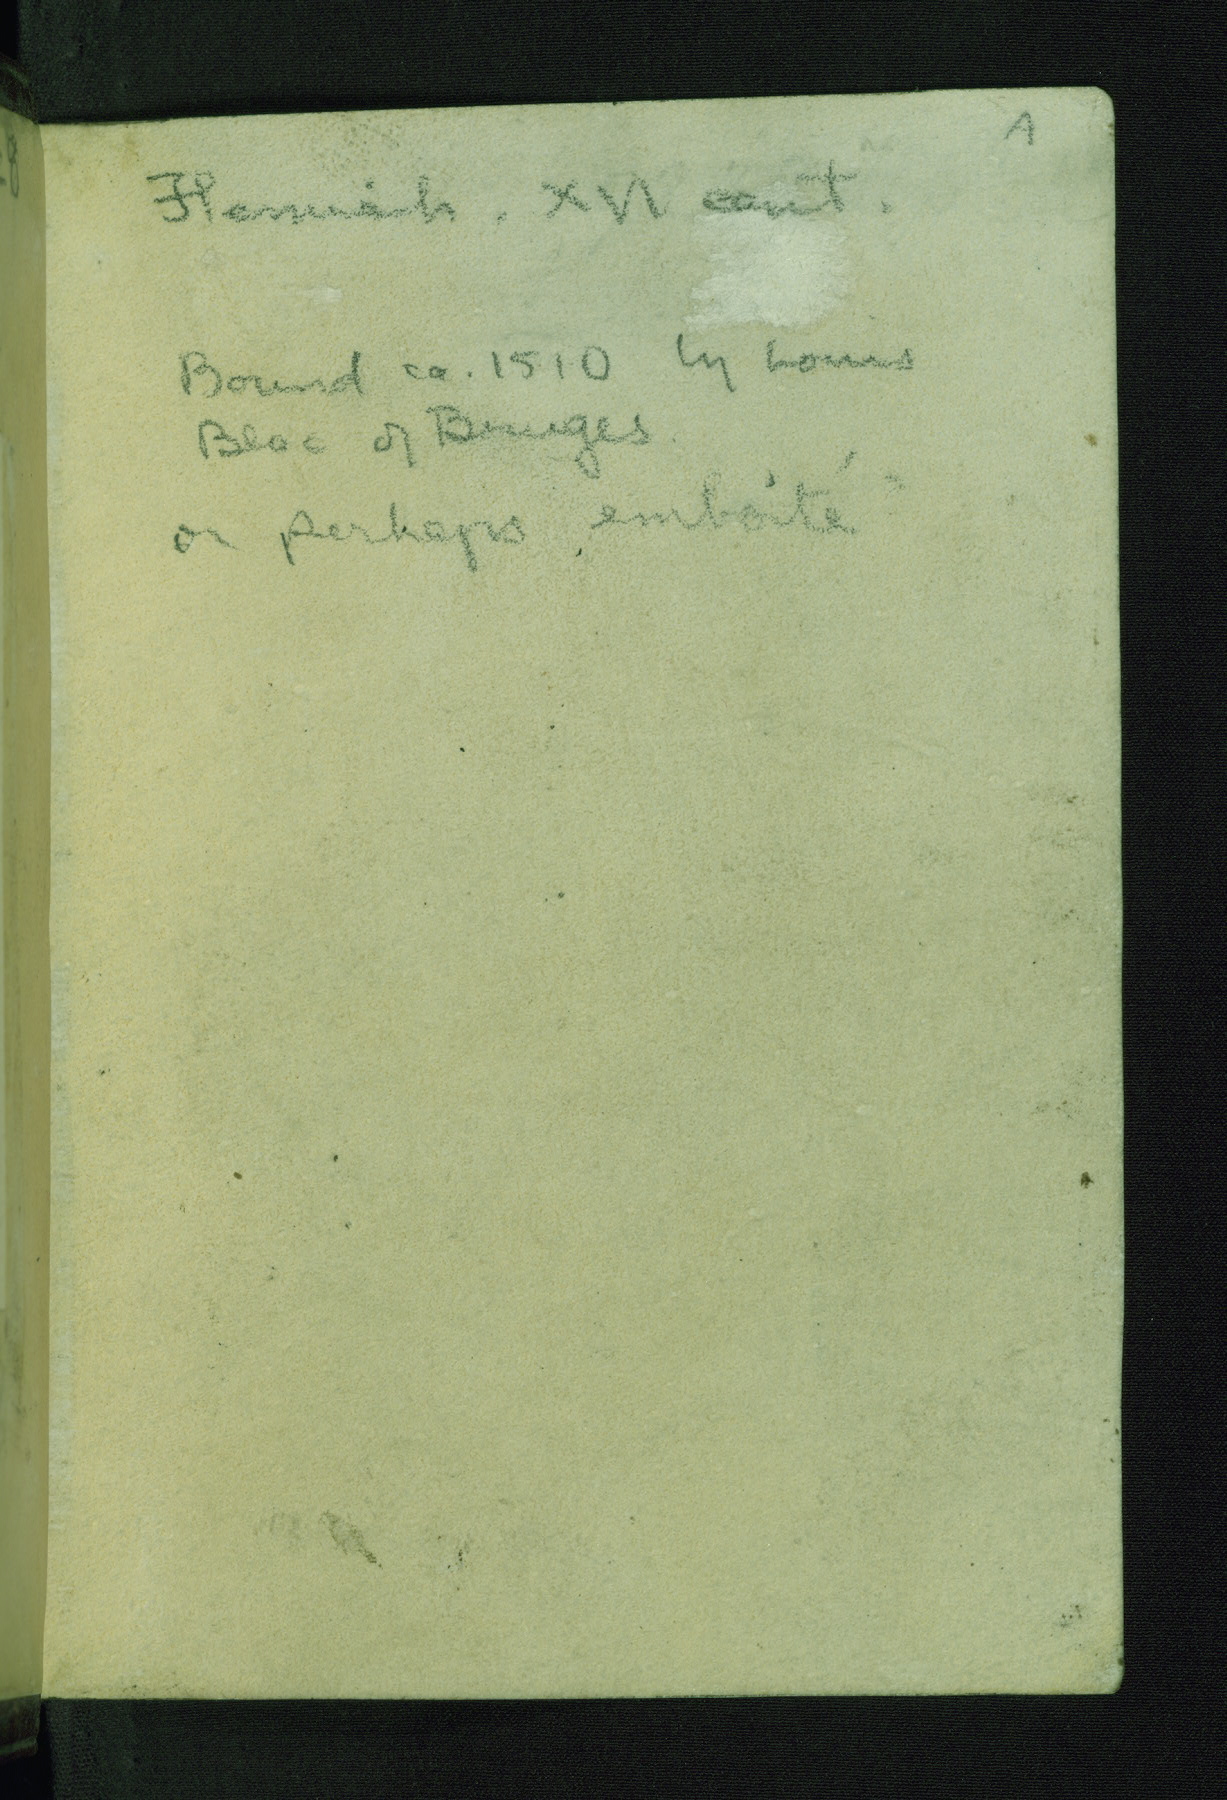 A
Flemish. XVI cent.
Bound ca. 1510 by Louis
Bloc of Bruges
or perhaps "emboîté"